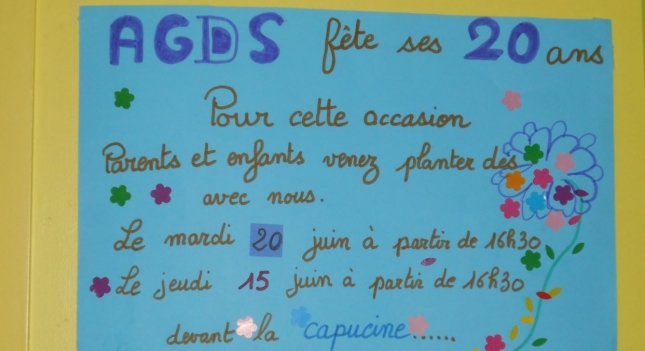 AGDS fête ses 20 ans
Pour cette occasion
Parents et enfants venez planter dés
avec nous.
Le mardi 20 juin à partir de 16h30
Le jeudi 15 juin à partir de 16h30
devant la capucine......